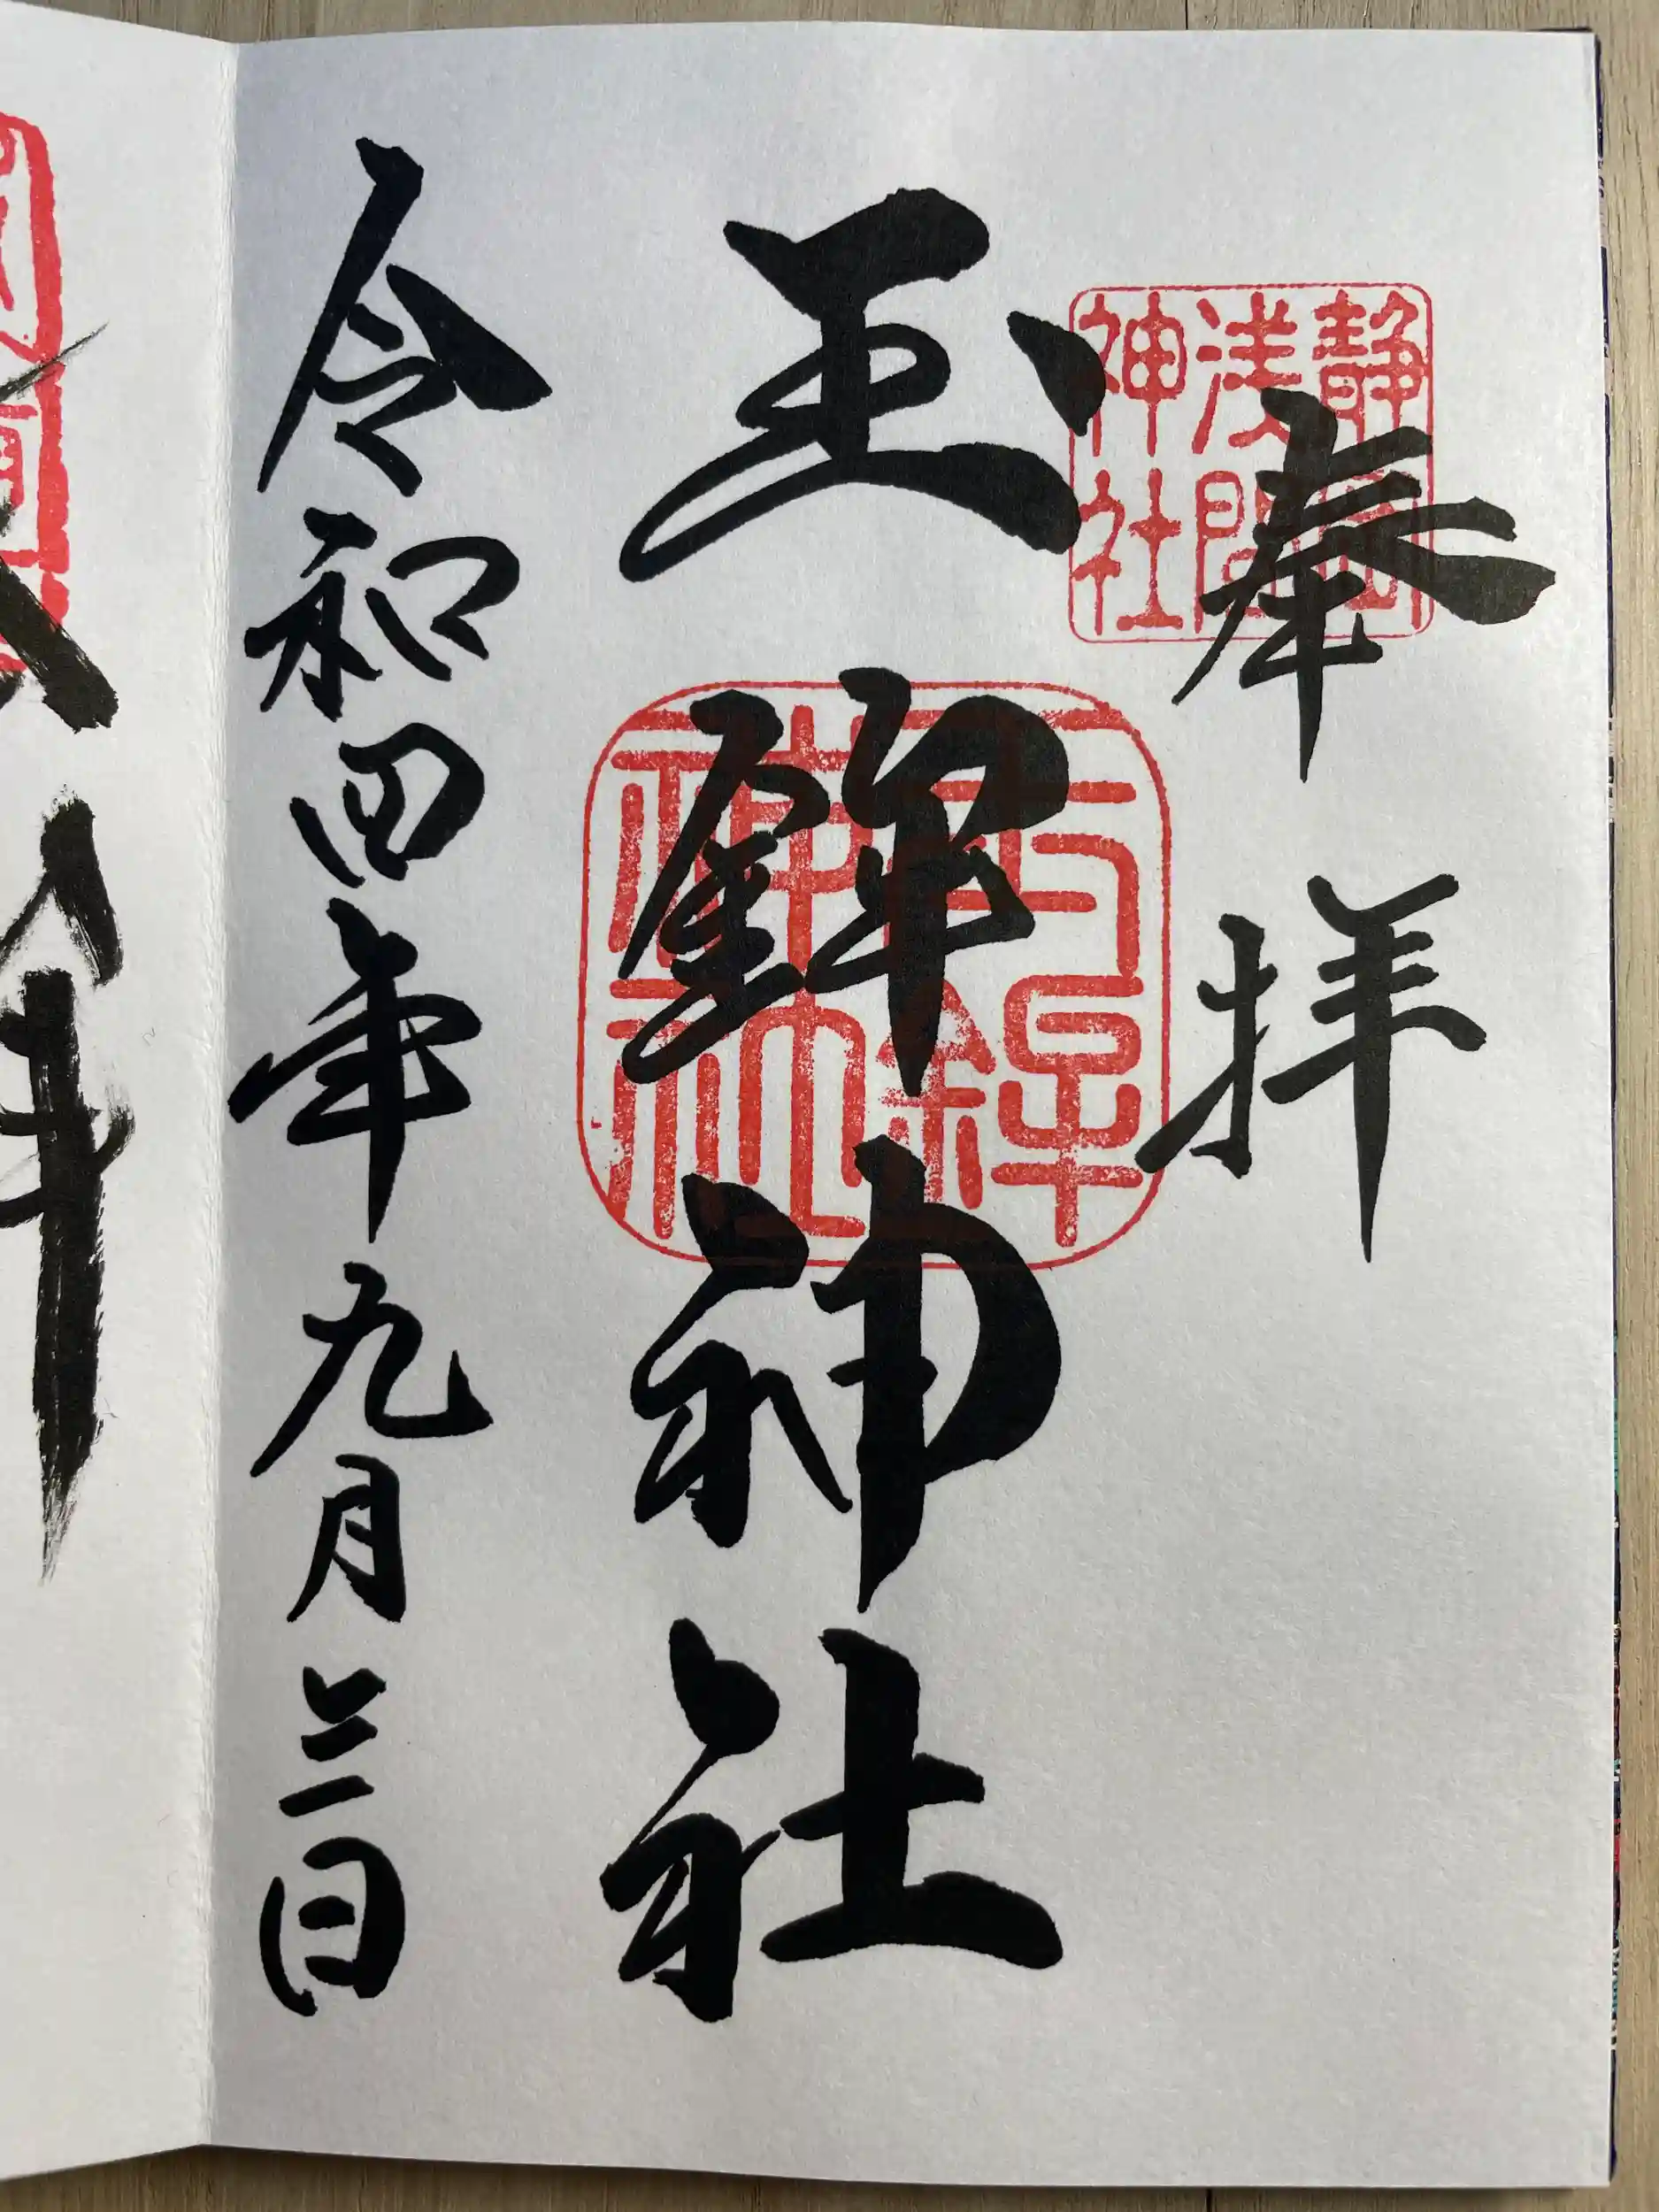 奉拝
静岡
浅間
神社
玉鉾神社
令和四年九月三日